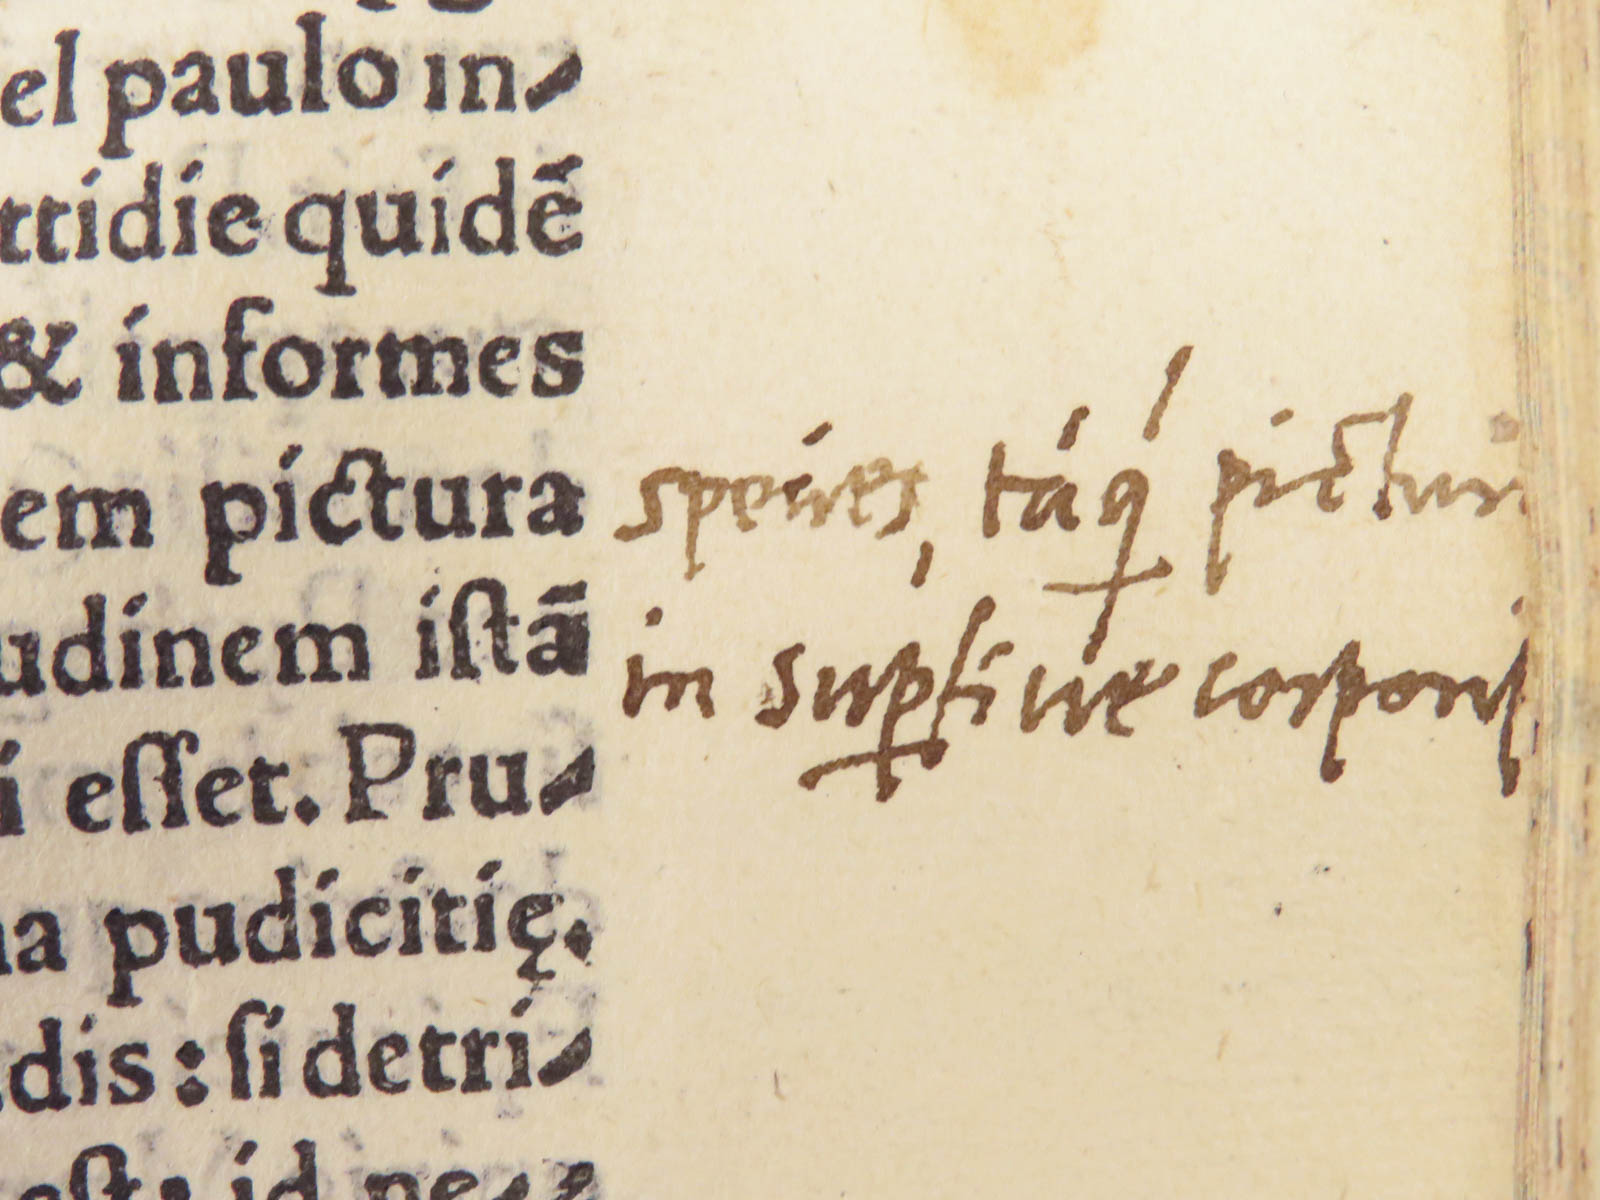 el paulo in-
ttidie quidē
& informes
em pictura
udinem istā
i esset. Pru-
na pudicitię.
dis: si detri-
est: id ne-
species, táq́ pictur
in supficie corporis